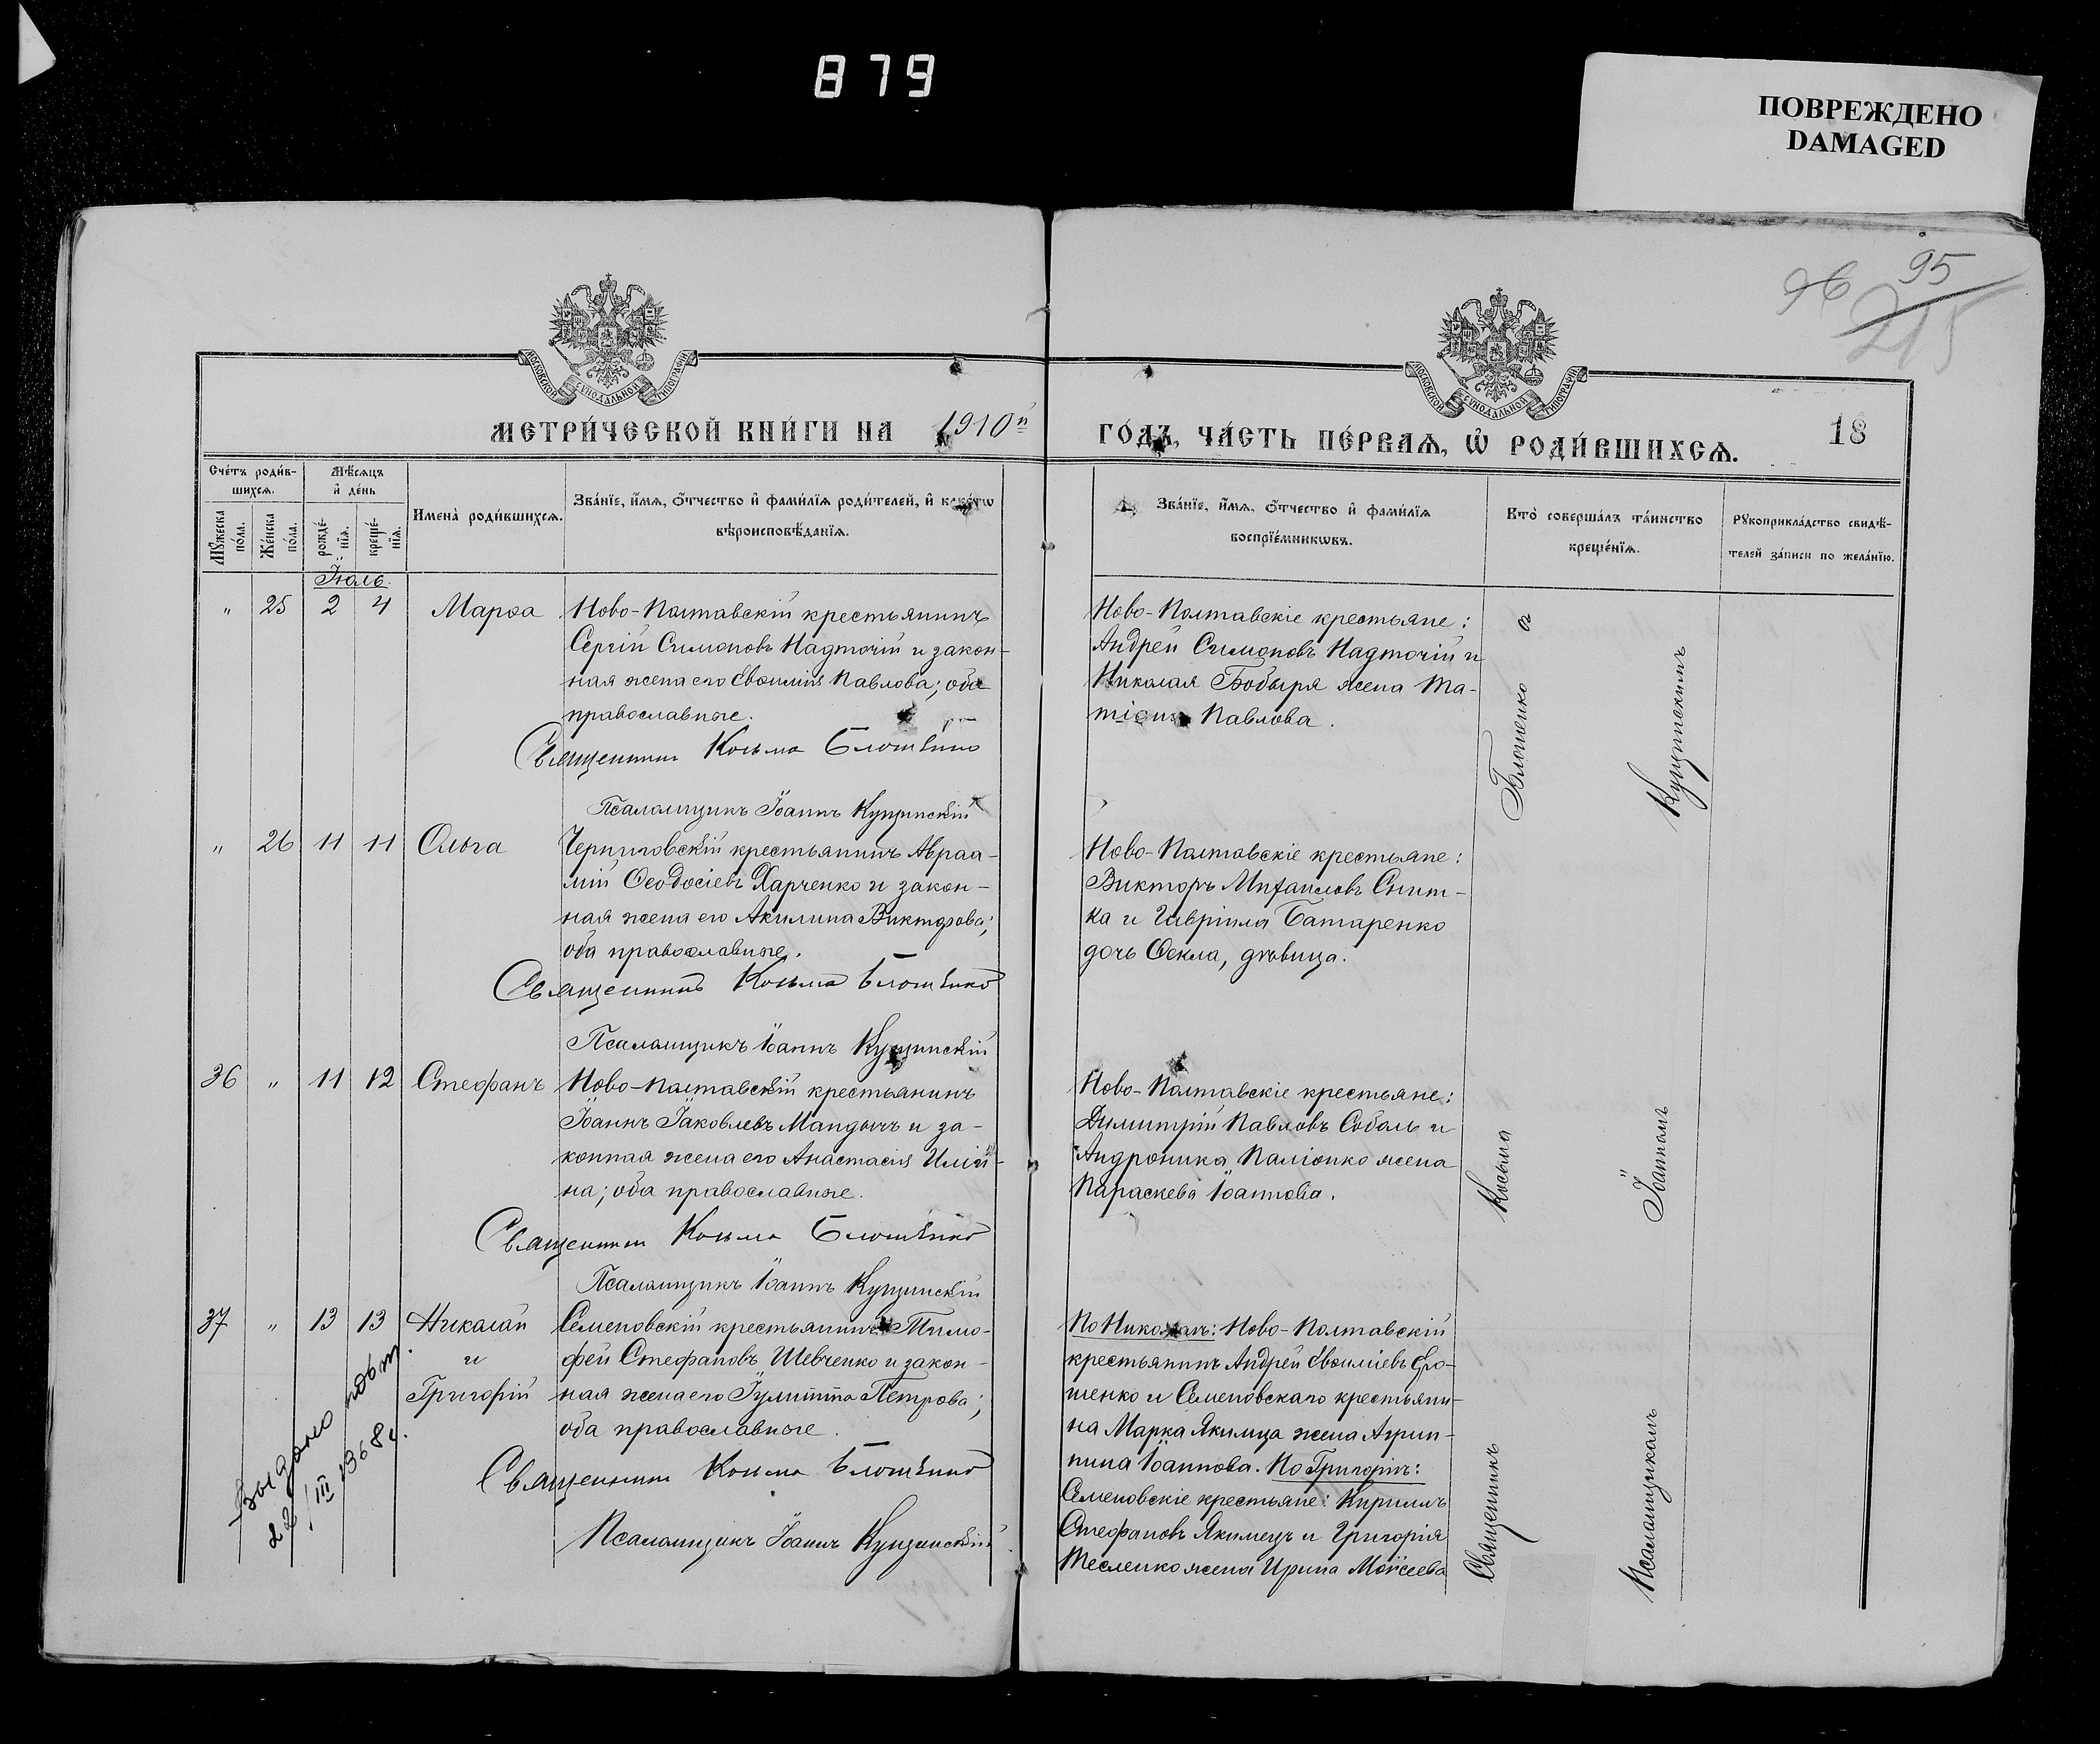 879
ПОВРЕЖДЕНО
DAMAGED
96 95
215
МОСКОВСКОЙ СѴНОДАЛЬНОЙ ТИПОГРАФИИ
МОСКОВСКОЙ СѴНОДАЛЬНОЙ ТИПОГРАФИИ
МЕТРИ́ЧЕСКОЙ КНИ́ГИ НА 1910й
ГО́ДЪ, ЧА́СТЬ ПЕ́РВАѦ, Ѡ҆ РОДИ́ВШИХСѦ.
18
Сче́тъ роди́в-
шихсѧ.
Мꙋ́жеска по́ла.
Же́нска по́ла.
Мѣ́сѧцъ
и҆ де́нь
рожде́-нїѧ.
креще́-нїѧ.
Имена̀ роди́вшихсѧ.
Зва́нїе, и҆́мѧ, ѻ҆́тчество и҆ фами́лїѧ роди́телей, и҆ како́гѡ
вѣроисповѣ́данїѧ.
Зва́нїе, и҆́мѧ, ѻ҆́тчество и҆ фами́лїѧ
воспрїе́мникѡвъ.
Кто̀ соверша́лъ та́инство
креще́нїѧ.
Рꙋкоприкла́дство свидѣ́-
телей за́писи по жела́нїю.
Іюль.
" 25 2 4 Марѳа
Ново-Полтавскій крестьянинъ
Сергій Симоновъ Надточій и закон-
ная жена его Евѳимія Павлова; оба
православные.
Священникъ Косьма Блошенко
Псаломщикъ Іоаннъ Купчинскій
Ново-Полтавскіе крестьяне:
Андрей Симоновъ Надточій и
Николая Бобыря жена Та-
тіана Павлова.
" 26 11 11 Ольга
Черниговскій крестьянинъ Авраа-
мій Ѳеодосіевъ Харченко и закон-
ная жена его Акилина Викторова;
оба православные.
Священникъ Косьма Блошенко
Псаломщикъ Іоаннъ Купчинскій
Ново-Полтавскіе крестьяне:
Викторъ Михаиловъ Снит-
ка и Гавріила Батаренко
дочь Ѳекла, дѣвица.
36 " 11 12 Стефанъ
Ново-Полтавскій крестьянинъ
Іоаннъ Іаковлевъ Мандычъ и за-
конная жена его Анастасія Иліи-
на; оба православные.
Священникъ Косьма Блошенко
Псаломщикъ Іоаннъ Купчинскій
Ново-Полтавскіе крестьяне:
Димитрій Павловъ Соболь и
Андроника Паліонко жена
Параскева Іоаннова.
37 " 13 13 Николай
и
Григорій
Семеновскій крестьянинъ Тимо-
фей Стефановъ Шевченко и закон-
ная жена его Іулитта Петрова;
оба православные.
Священникъ Косьма Блошенко
Псаломщикъ Іоаннъ Купчинскій
По Николаѣ: Ново-Полтавскій
крестьянинъ Андрей Евѳиміевъ Еро-
шенко и Семеновскаго крестьяни-
на Марка Якимца жена Агрип-
пина Іоаннова. По Григоріѣ:
Семеновскіе крестьяне: Кириллъ
Стефановъ Якимецъ и Григорія
Тесленко жена Ирина Моѵсеева
Священникъ Косьма Блошенко съ
Псаломщикомъ Іоанномъ Купчинскимъ
Выдано
22/III 1936 8